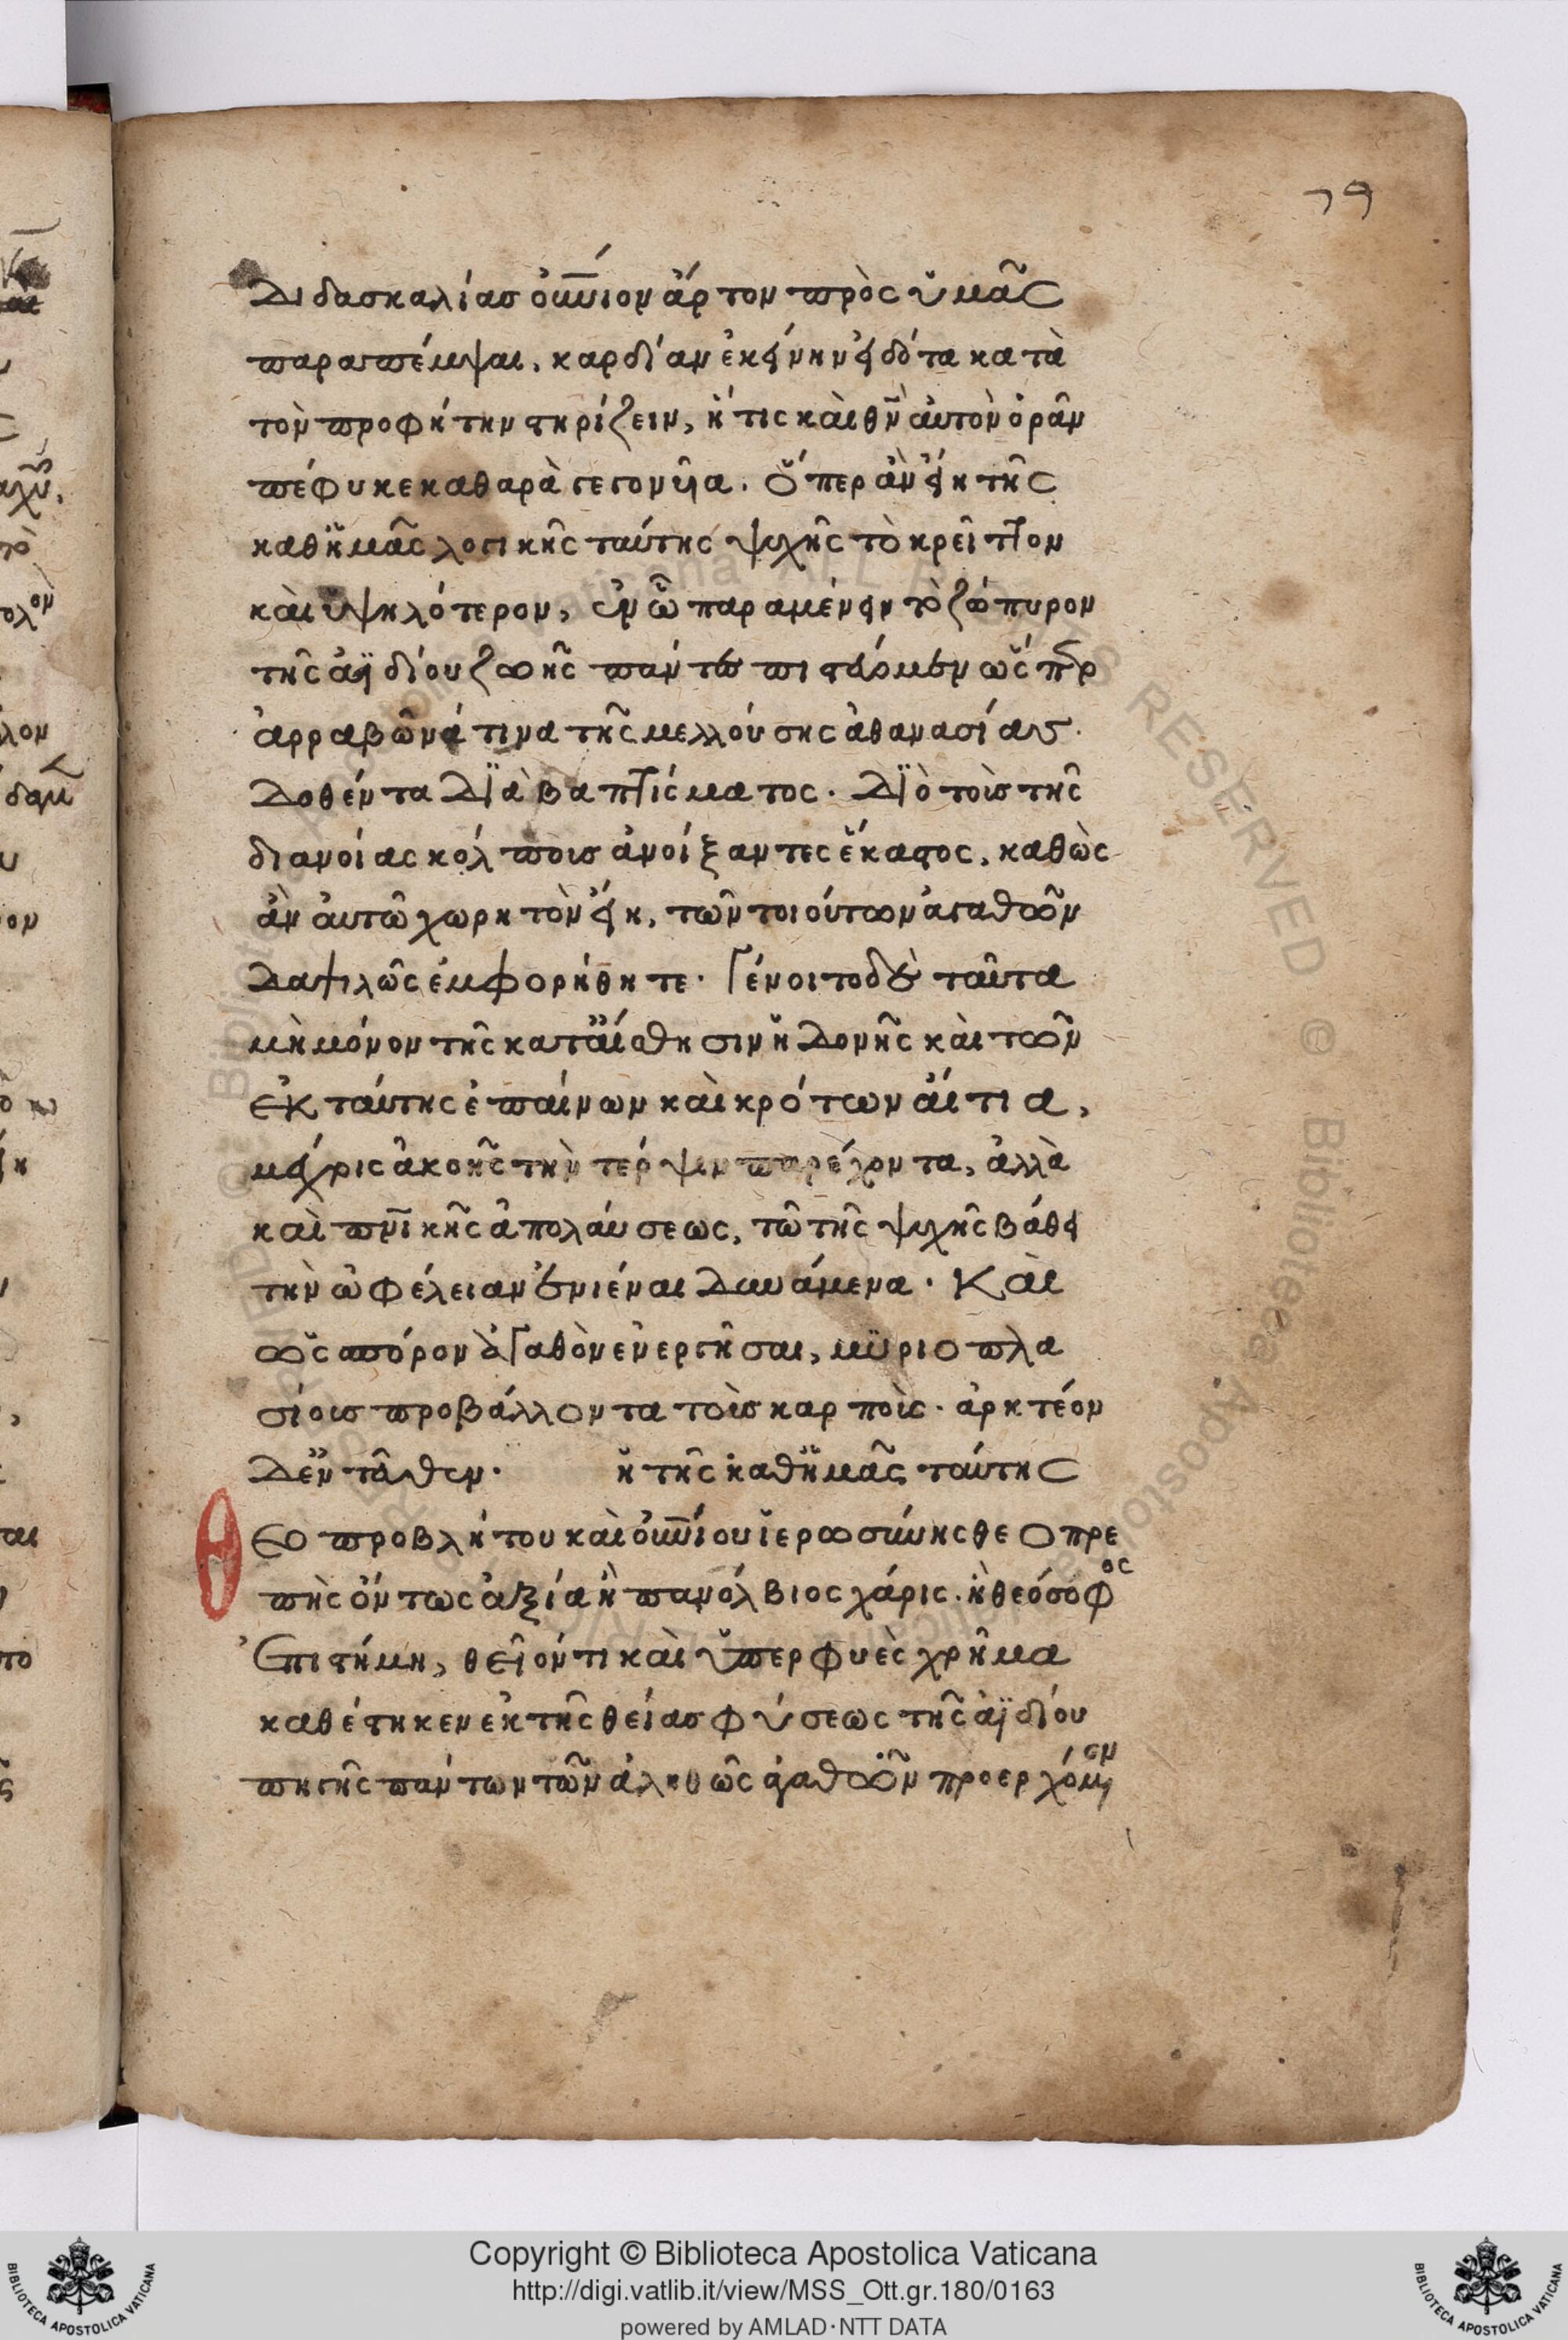 79
Διδασκαλίας οὐ̅νιον ἄρτον πρὸς ὑμᾶς
παραπέμψαι, καρδίαν ἐκείνην εἰδότα κατὰ
τὸν προφήτην στηρίζειν, ἥτις καὶ θν̅ αὐτὸν ὁρᾶν
πέφυκε καθαρὰ γεγονυῖα. ὅπερ ἂν εἴη τῆς
καθ' ἡμᾶς λογικῆς ταύτης ψυχῆς τὸ κρεῖττον
καὶ ὑψηλότερον, ἐν ᾧ παραμένειν τὸ ζώπυρον
τῆς ἀϊδίου ζωῆς πάντως πιστεύομεν ὥσπερ
ἀρραβῶνά τινα τῆς μελλούσης ἀθανασίας.
Δοθέντα Διὰ βαπτίσματος. Διὸ τοῖς τῆς
διανοίας κόλποις ἀνοίξαντες ἕκαστος, καθὼς
ἂν αὐτῷ χωρητὸν εἴη, τῶν τοιούτων ἀγαθῶν
Δαψιλῶς ἐμφορήθητε. Γένοιτο δὲ ταῦτα
μὴ μόνον τῆς κατ' αἴσθησιν ἡδονῆς καὶ τῶν
ἐκ ταύτης ἐπαίνων καὶ κρότων αἴτια,
μέχρις ἀκοῆς τὴν τέρψιν παρέχοντα, ἀλλὰ
καὶ πν̅ικῆς ἀπολαύσεως, τῷ τῆς ψυχῆς βάθει
τὴν ὠφέλειαν ἐνιέναι Δυνάμενα. Καὶ
ὡς σπόρον ἀγαθὸν ἐνεργῆσαι, μυριοπλα
σίοις προβάλλοντα τοῖς καρποῖς. ἀρκτέον
Δ' ἐντεῦθεν. ἡ τῆς καθ' ἡμᾶς ταύτης
Θεοπροβλήτου καὶ οὐ̅νίου ἱερωσύνης θεοπρε
πὴς ὄντως ἀξία ἢ πανόλβιος χάρις. ἡ θεόσοφος
Ἐπιστήμη, θεῖόν τι καὶ ὑπερφυὲς χρῆμα
καθέστηκεν ἐκ τῆς θείας φύσεως τῆς ἀϊδίου
πηγῆς πάντων τῶν ἀληθῶς ἀγαθῶν προερχόμεν
Copyright © Biblioteca Apostolica Vaticana
http://digi.vatlib.it/view/MSS_Ott.gr.180/0163
powered by AMLAD·NTT DATA